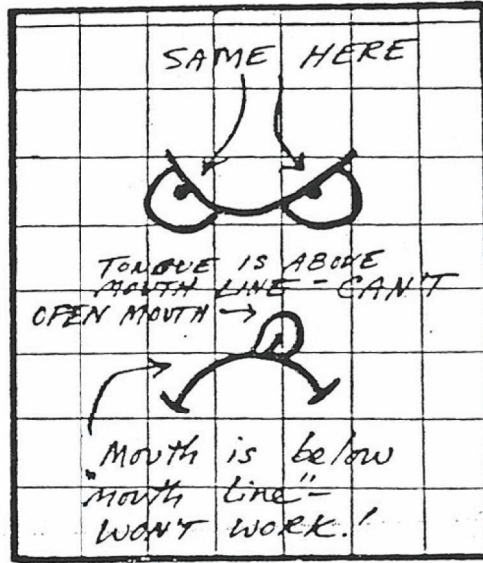 SAME HERE
TONGUE IS ABOVE
MOUTH LINE - CAN'T
OPEN MOUTH →
Mouth is below
"mouth line" -
WON'T WORK!